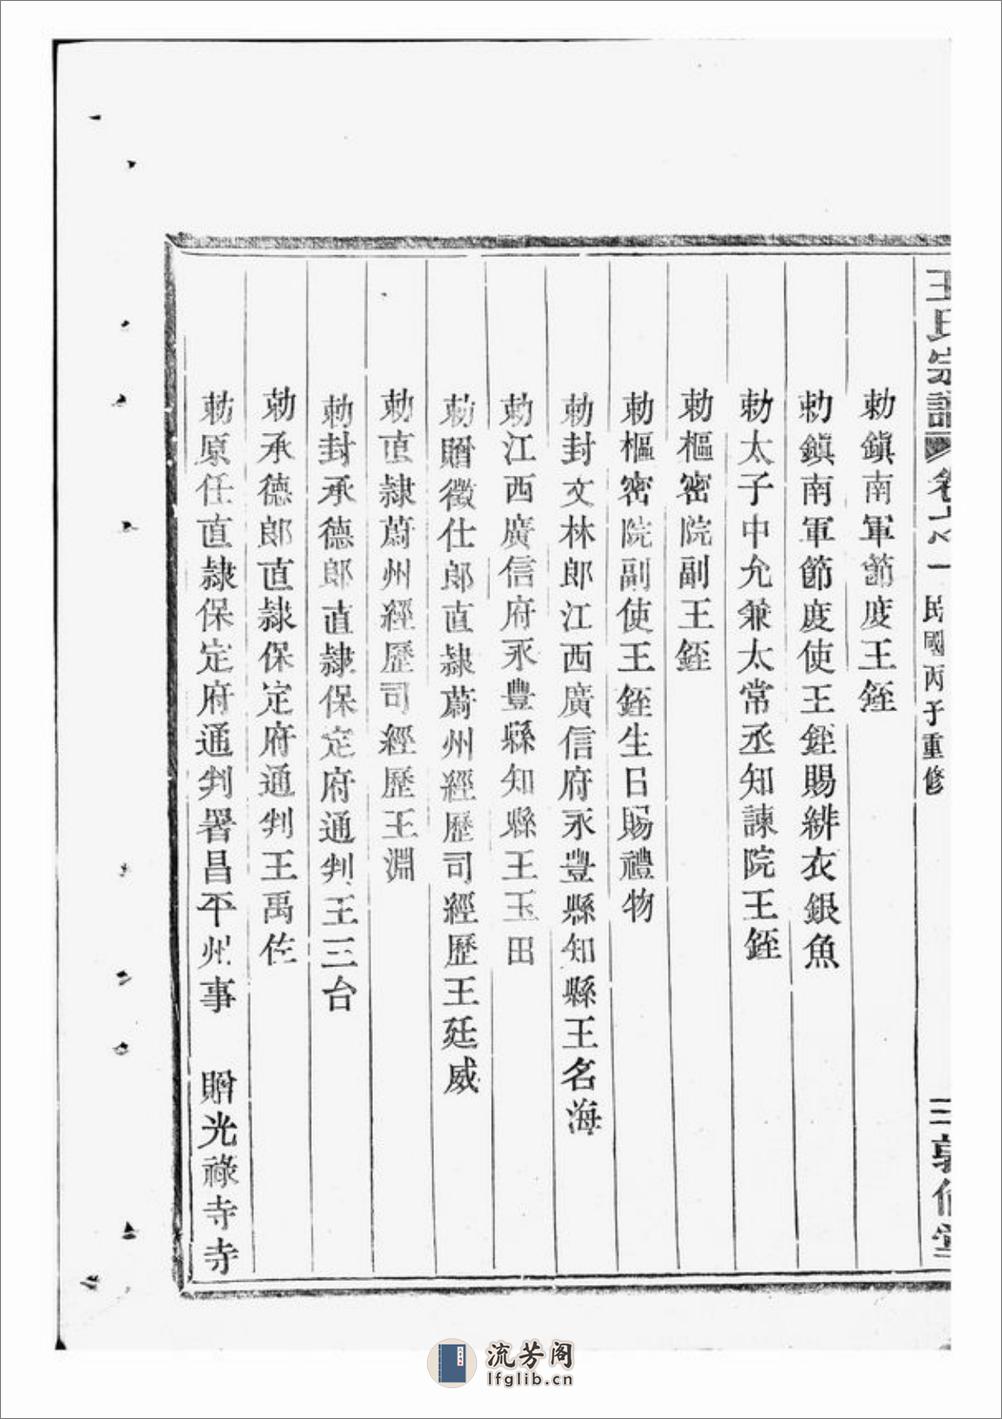 王氏宗譜 卷之一 民國丙子重修 三 敦倫堂
勅鎮南軍節度王銍
勅鎮南軍節度使王銍賜緋衣銀魚
勅太子中允兼太常丞知諫院王銍
勅樞密院副王銍
勅樞密院副使王銍生日賜禮物
勅封文林郎江西廣信府永豐縣知縣王名海
勅江西廣信府永豐縣知縣王玉田
勅贈徵仕郎直隷蔚州經歷司經歷王廷威
勅直隷蔚州經歷司經歷王淵
勅封承德郎直隷保定府通判王三台
勅承德郎直隷保定府通判王禹佐
勅原任直隷保定府通判署昌平州事 贈光祿寺寺
流芳阁
lfglib.cn